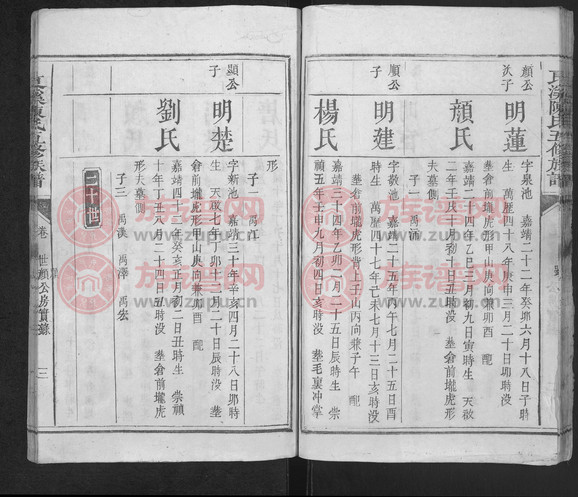 顯公
次子
明蓮
字泉池 嘉靖二十二年癸卯六月十八日子時
生 萬歷四十八年庚申三月二十日卯時没
塟倉前壠虎形甲山庚向兼卯酉 配
顔氏
嘉靖二十四年乙巳三月初九日寅時生 天啟
二年壬戌十月初十日丑時没 塟倉前壠虎形
夫墓側
子一 禹涌
順公
子
明建
字敬池 嘉靖二十五年丙午七月二十五日酉
時生 萬歷四十七年己未七月十三日亥時没
塟倉前壠虎形背上壬山丙向兼子午 配
楊氏
嘉靖三十四年乙卯二月二十五日辰時生 崇
禎五年壬申九月初四日亥時没 塟毛裏冲掌
形
子一 禹江
顯公
子
明楚
字新池 嘉靖三十年辛亥四月二十八日卯時
生 天啟七年丁卯三月二十日辰時没 塟
倉前壠虎形甲山庚向兼卯酉 配
劉氏
嘉靖四十二年癸亥正月初二日丑時生 崇禎
十年丁丑八月二十四日丑時没 塟倉前壠虎
形夫墓側
子三 禹漢 禹澤 禹宏
二十世
陳氏五修族譜
卷 世顯公房實錄
三
族谱网
www.zupu.cn